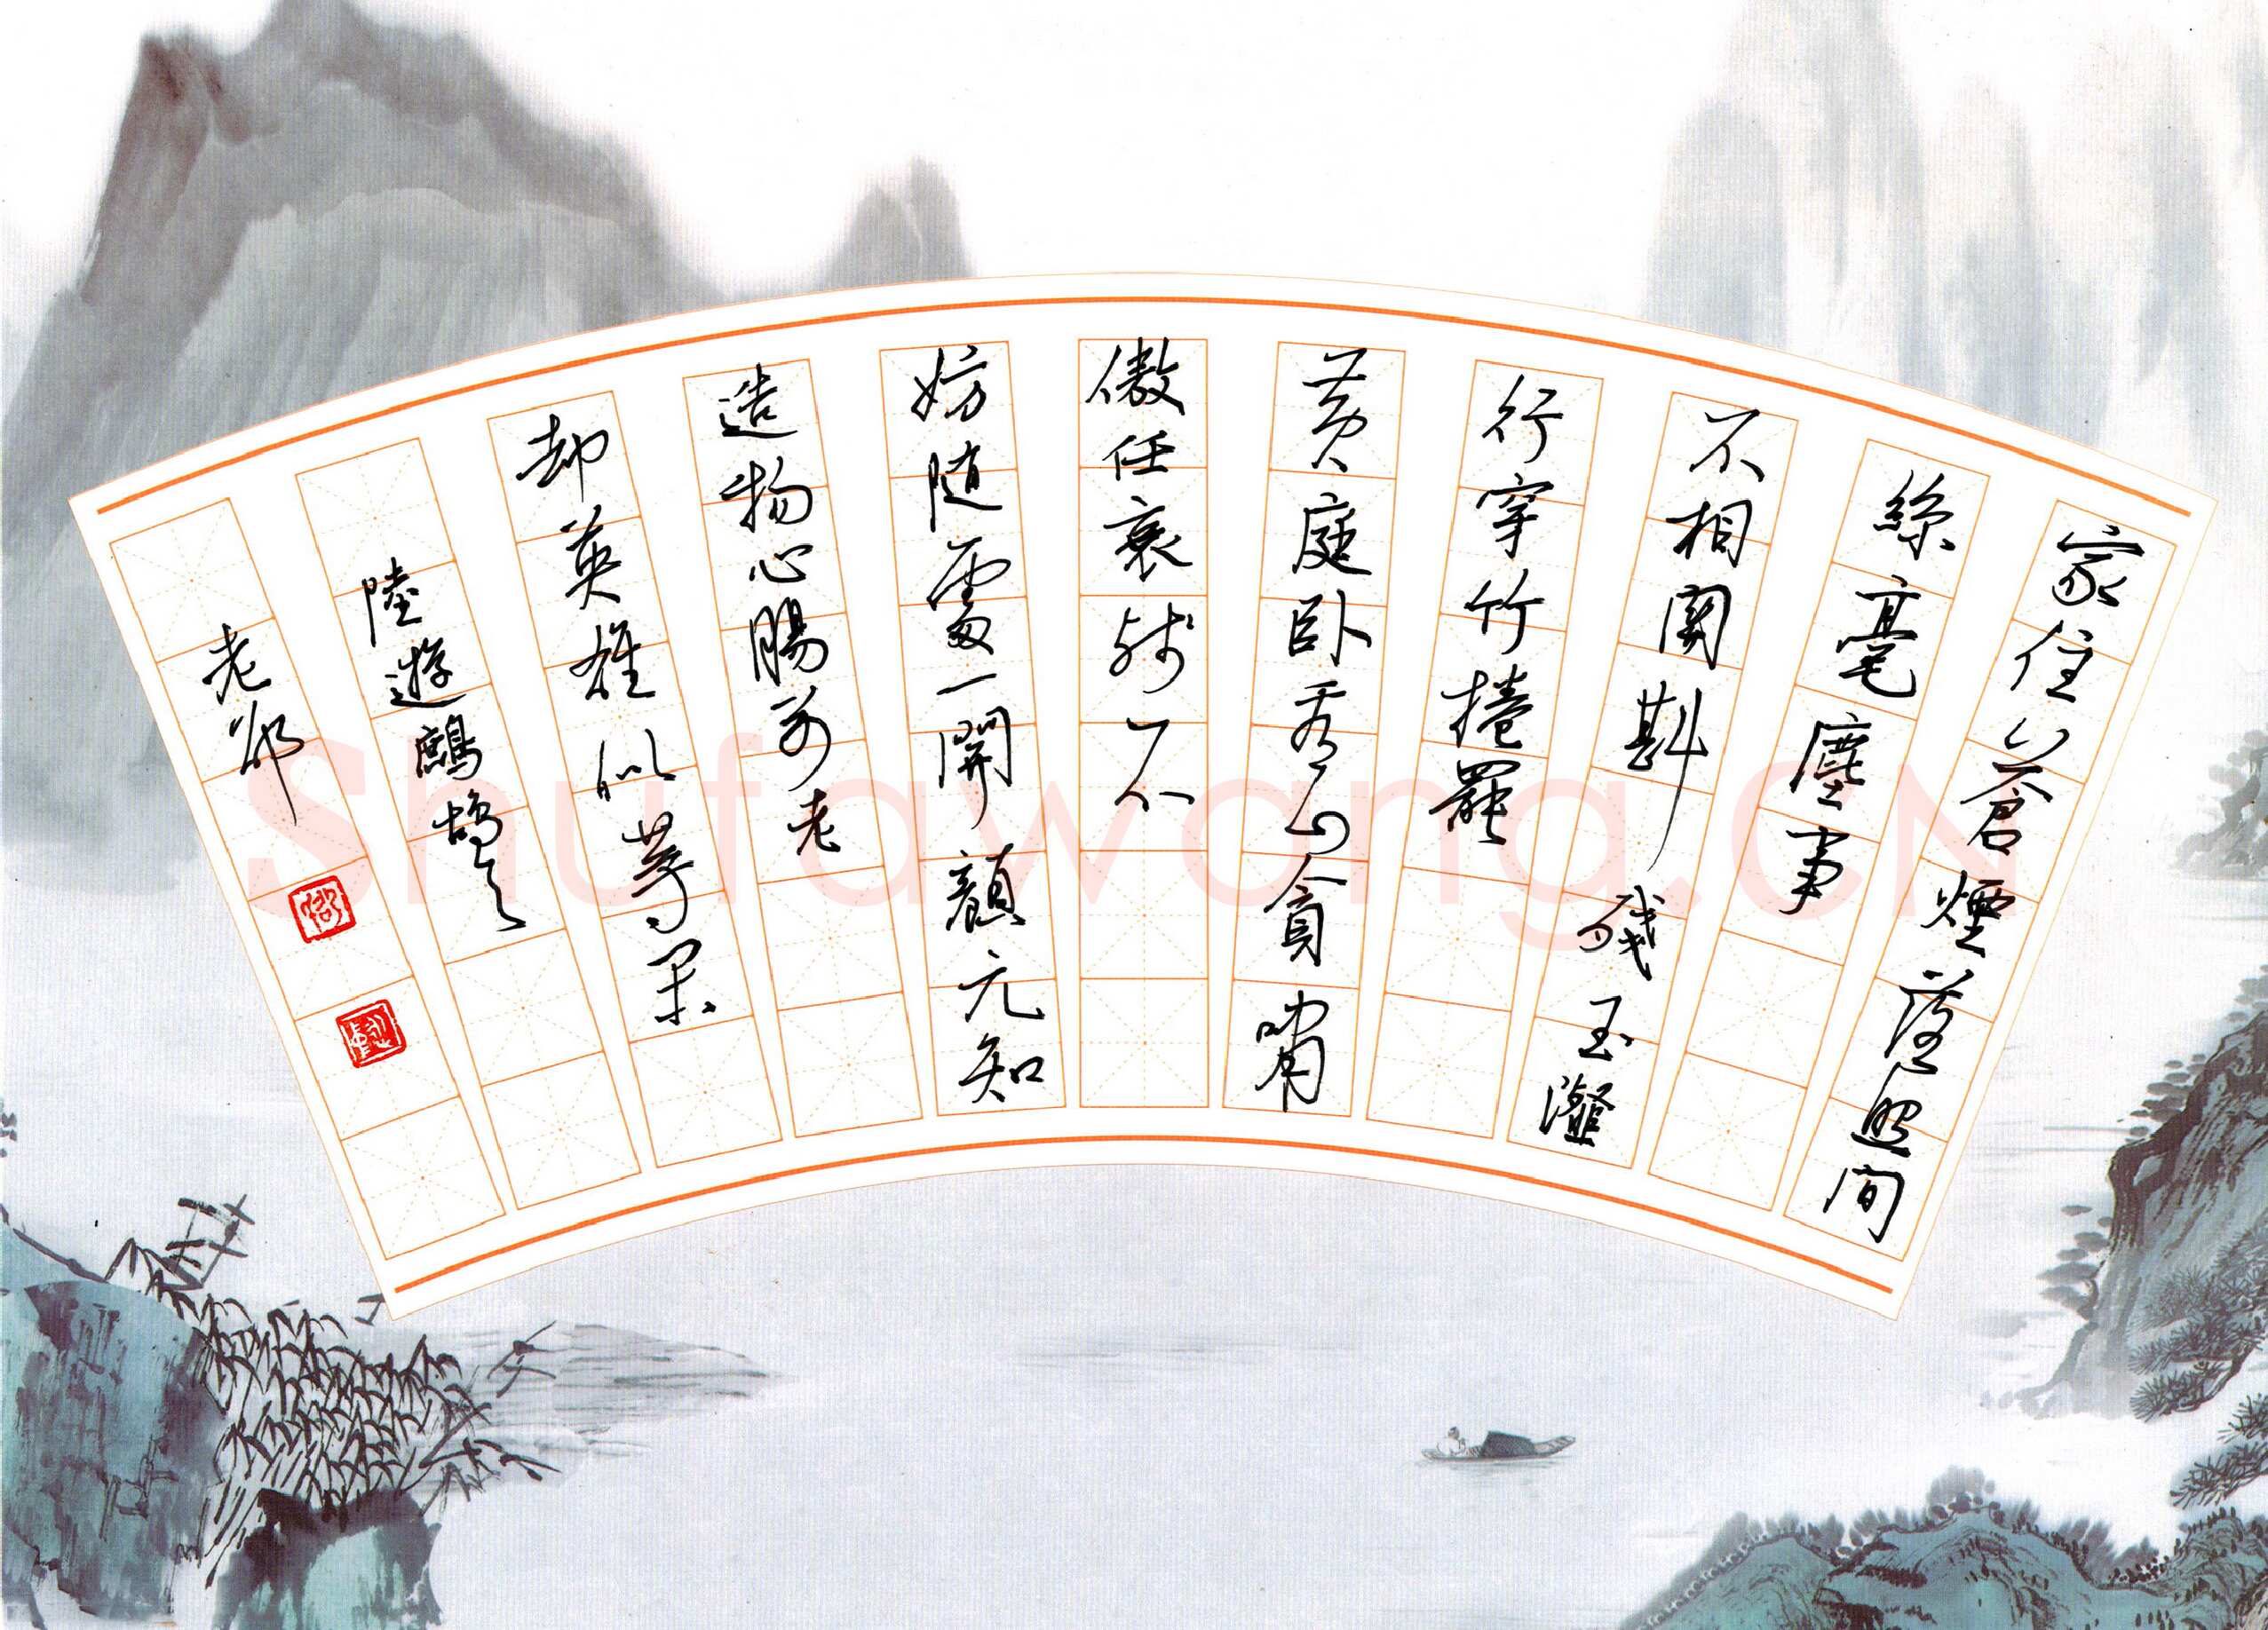 家住蒼煙落照间
絲毫塵事
不相関斟残玉瀣
行穿竹捲罷
黄庭卧看山貪嘯
傲任衰残不
妨随處一開顔元知
造物心腸别老
却英雄似等闲
陸遊鷓鴣天
老
Shufawang.CN